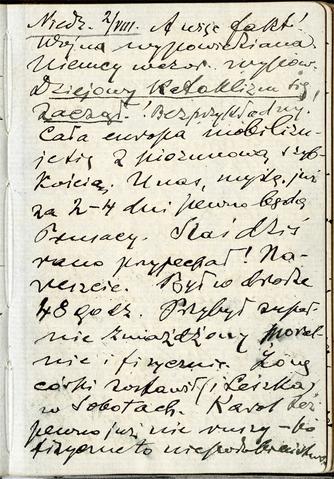 Niedz. 2/VIII. A więc fakt!
Wojna wypowiedziana.
Niemcy wczor. wypow.
Dziejowy kataklizm się
zaczął! Bezprzykładny.
Cała europa mobilizu-
je się z piorunową szyb-
kością. U nas, myślę, już
za 2-4 dni pewno będą
Prusacy. Staś dziś
rano przyjechał! Na-
reszcie. Był w drodze
48 godz. Przybył zupeł-
nie zmiażdżony moral-
nie i fizycznie. Żonę
córki zostawił (i Leszka)
w Sobotach. Karol też
pewno już nie ruszy - bo
fizycznie to niepodobieństwo